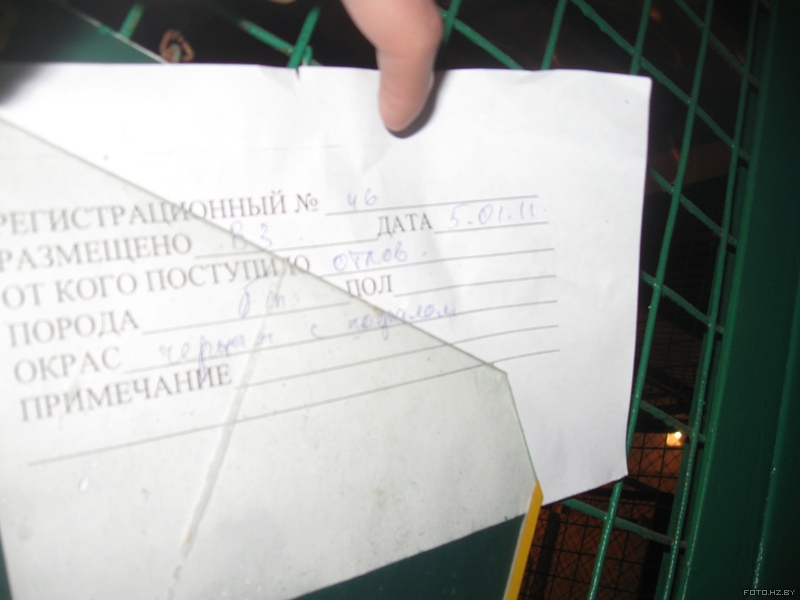 РЕГИСТРАЦИОННЫЙ № 46
РАЗМЕЩЕНО В 3 ДАТА 5.01.11.
ОТ КОГО ПОСТУПИЛО отлов
ПОРОДА б/п. ПОЛ
ОКРАС черная с подпалом
ПРИМЕЧАНИЕ
FOTO.HZ.BY